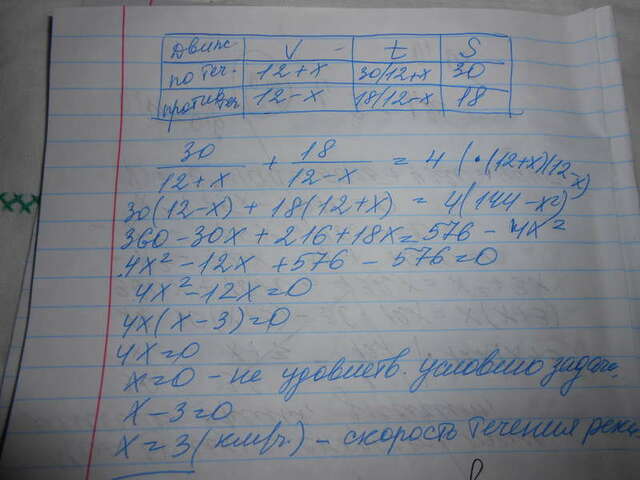 движ. V t S
по теч. 12+x 30/12+x 30
против теч. 12-x 18/12-x 18
30/12+x + 18/12-x = 4 (·(12+x)(12-x)
30(12-x) + 18(12+x) = 4(144-x²)
360-30x+216+18x=576-4x²
4x²-12x+576-576=0
4x²-12x=0
4x(x-3)=0
4x=0
x=0 - не удовлетв. условию задачи,
x-3=0
x=3(км/ч.) - скорость течения реки